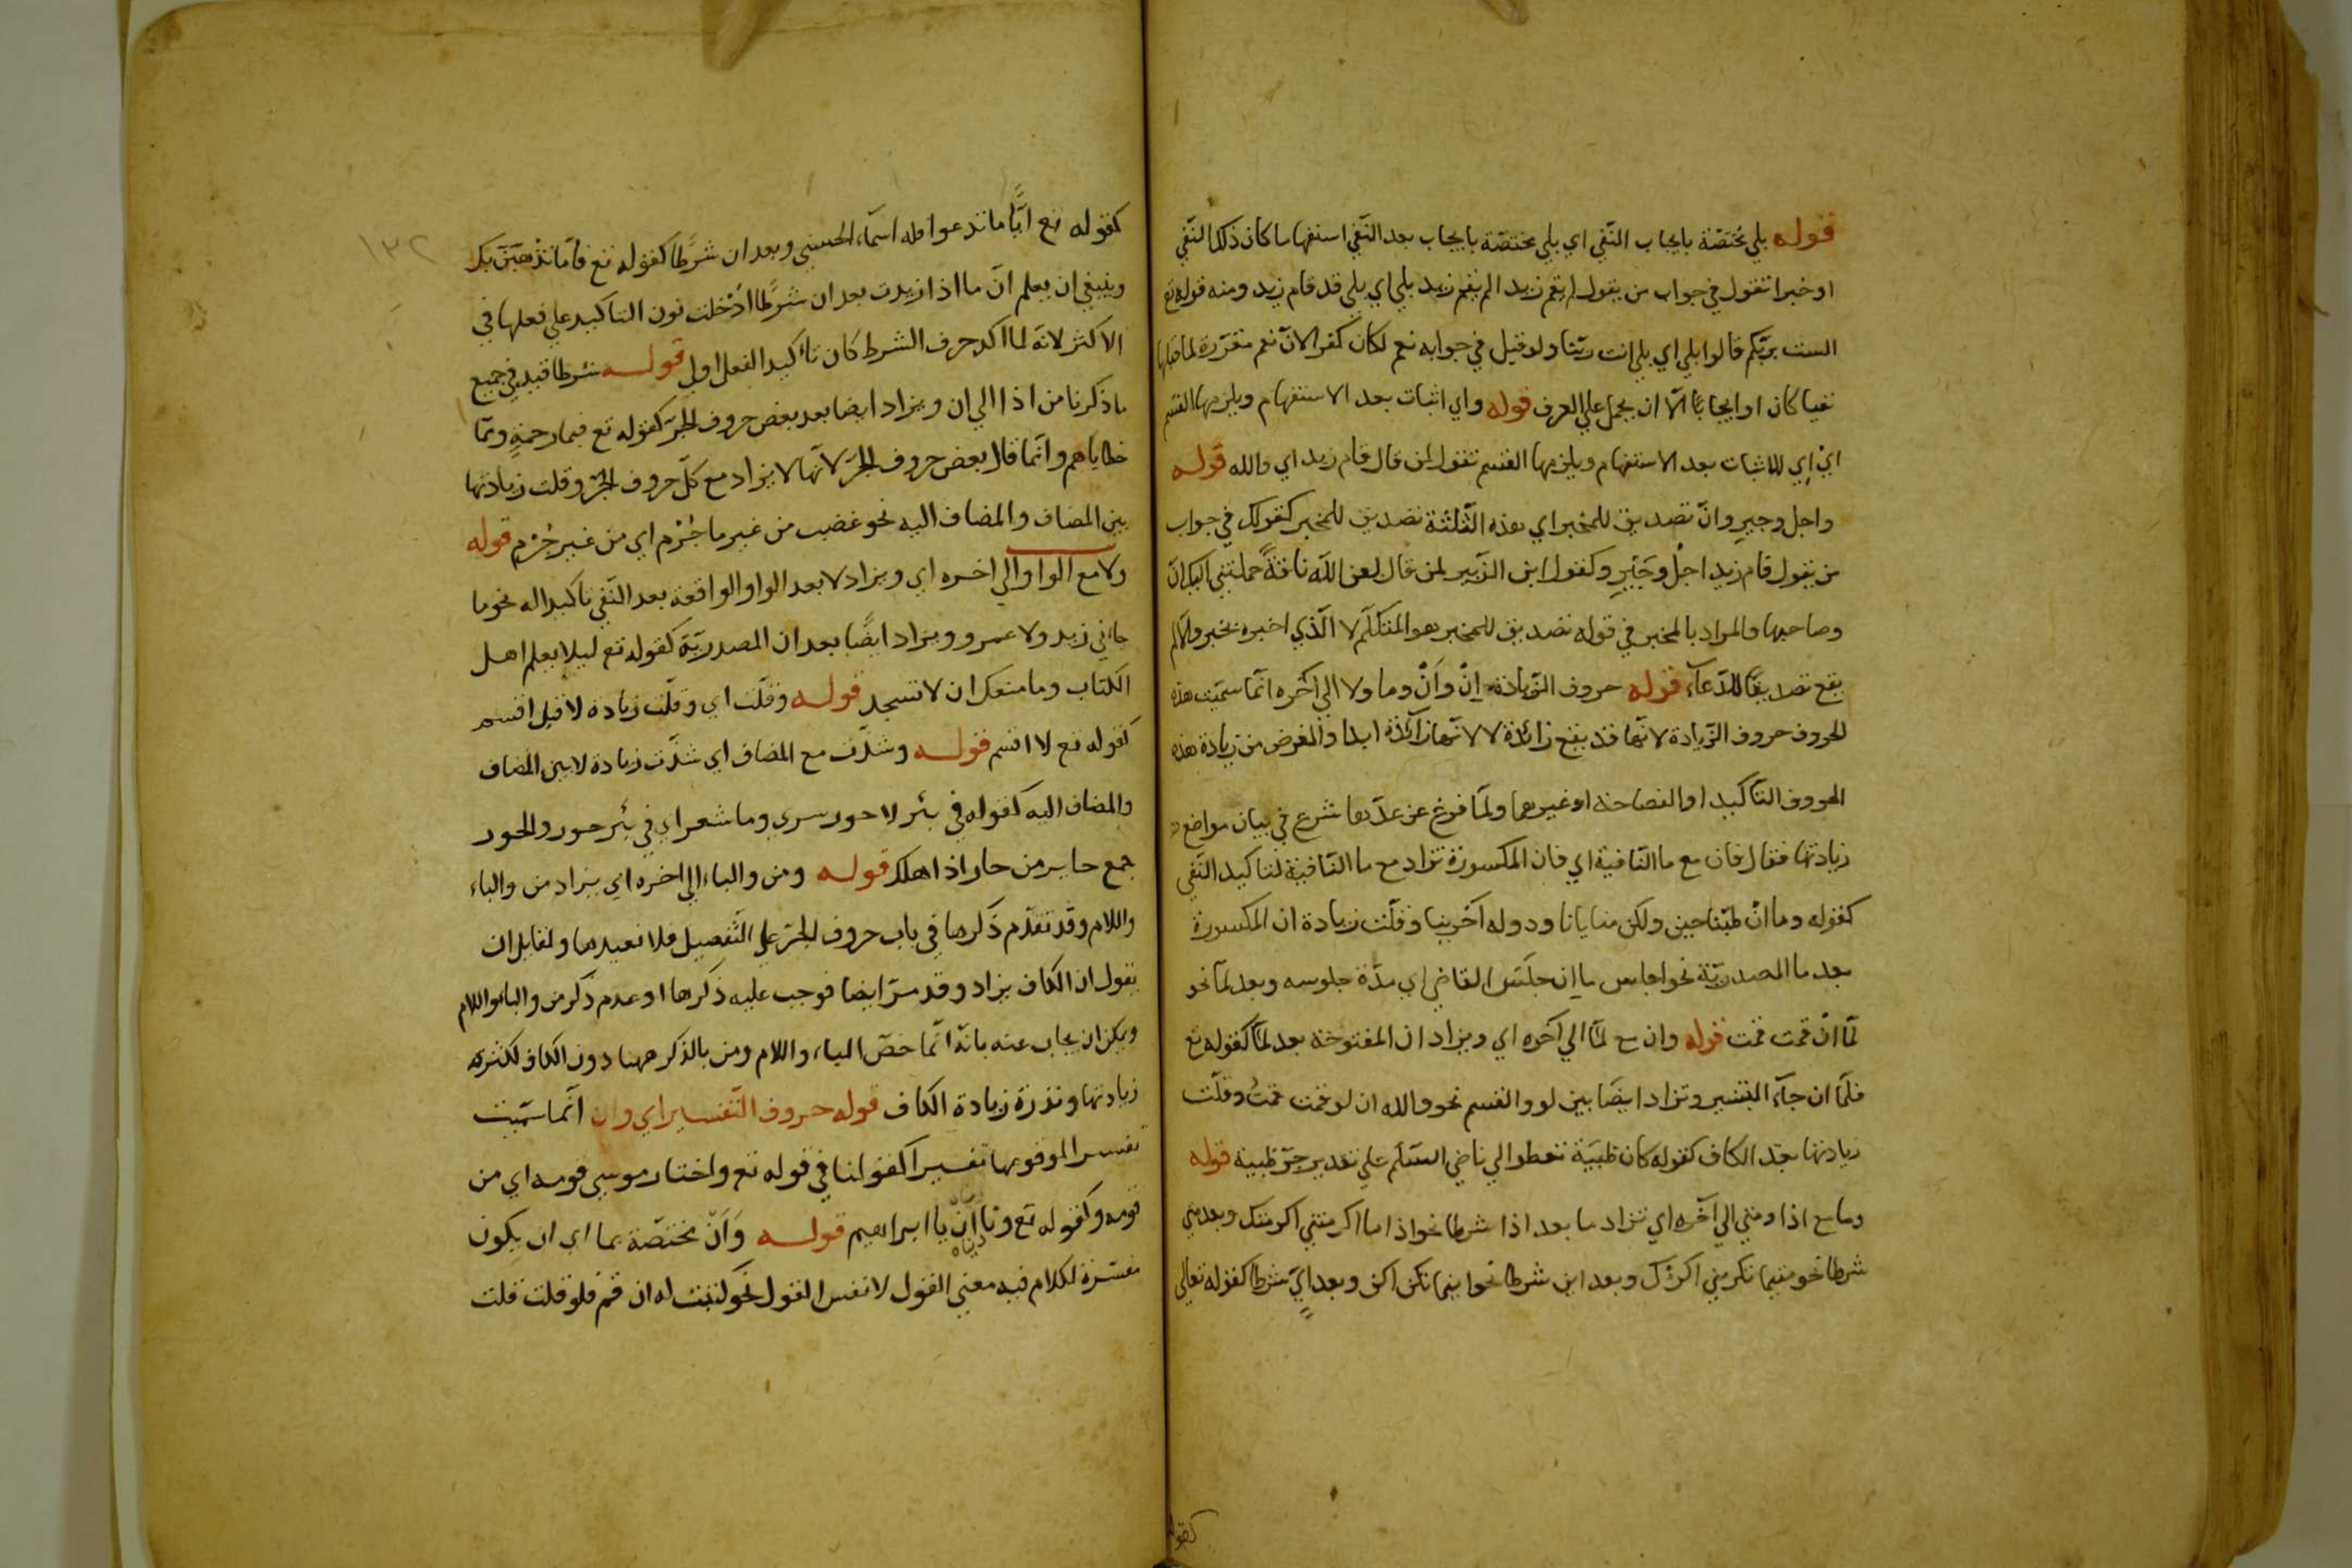 قوله بلي مختصّة بايجاب النّفي اي بلي مختصّة بايجاب بعد النّفي استفهاما كان ذلك النّفي
او خبرا تقول في جواب من يقول لم يقم زيد الم يقم زيد بلي اي بلي قد قام زيد ومنه قوله تع
الست بربّكم قالوا بلي اي بلي انت ربّنا ولو قيل في جوابه نعم لكان كفرا لانّ نعم مقرّرة لما قبلها
نفيا كان او ايجابًا الّا ان يحمل علي العرف قوله واي اثبات بعد الاستفهام ويلزمها القسم
ايْ اِي للاثبات بعد الاستفهام ويلزمها القسم تقول لمن قال قام زيد اي والله قوله
واجل وجيرِ وانّ تصديق للمخبر اي هذه الثّلثة تصديق للمخبر كقولك في جواب
من يقول قام زيد اجلْ وجَيْرِ وكقول ابن الزّبير لمن قال لعن اللّه ناقةً حملتني اليك انّ
وصاحبها والمراد بالمخبر في قوله تصديق للمخبر هو المتكلّم لا الّذي اخبره بخبر والّا لم
يقع تصديقًا للدّعآء قوله حروف الزّيادة اِنْ واَنْ وما ولا الي آخره انّما سمّيت هذه
الحروف حروف الزّيادة لانّها قد يقع زائدة لا لانّها زآئدة ابدا والغرض من زيادة هذه
الحروف التّأكيد او الفصاحة او غيرهما ولمّا فرغ عن عدّها شرع في بيان مواضع
زيادتها فقال فان مع ما النّافية اي فان المكسورة تزاد مع ما النّافية لتاكيد النّفي
كقوله وما انْ طبّنا جبن ولكن منايانا ودوله آخرينا وقلّت زيادة ان المكسورة
بعد ما المصدريّة نحو اجلس ما اِن جلَسَ القاضي اي مدّة جلوسه وبعد لمّا نحو
لمّا انْ قمت قمت قوله وان مع لمّا الي آخره اي ويزاد ان المفتوحة بعد لمّا كقوله تع
فلمّا ان جآء البشير وتزاد ايضًا بين لو والقسم نحو والله ان لو قمت قمتُ وقلّت
زيادتها بعد الكاف كقوله كان ظبيَة تعطوا الي ناضر السّلم علي تقدير جرّ ظبية قوله
وما مع اذا ومتي الي آخره اي تزاد ما بعد اذا شرطا نحو اذا ما اكرمتني اكرمتك وبعد متي
شرطا نحو متيما تكرمني اكرمك وبعد اين شرطا نحو اينما تكن اكن وبعد ايٍّ شرطا كقوله تعالي
كقوله
كقوله تع ايًّا ما تدعوا فله اسمآء الحسني وبعد ان شرْطا كقوله تع فامّا نذْهبَنّ بك
وينبغي ان يعلم انّ ما اذا زيدت بعد ان شرْطا ادْخلت نون التاكيد علي فعلها في
الاكثر لانّه لما اكد حرف الشرط كان تأكيد الفعل اولي قوله شرطا قيد في جميع
ما ذكرنا من اذا الي ان ويزاد ايضا بعد بعض حروف الجرّ كقوله تع فبما رحمةٍ وممّا
خطاياهم وانّما قال بعض حروف الجرّ لانّها لا يزاد مع كلّ حروف الجرّ وقلت زيادتها
بين المضاف والمضاف اليه نحو غضبت من غير ما جُرْم اي من غير جُرْم قوله
ولا مع الواو الي اخره اي ويزاد لا بعد الواو الواقعة بعد النّفي تاكيدا له نحو ما
جاءني زيد ولا عمرو ويزاد ايضًا بعد ان المصدريّة كقوله تع ليلا يعلم اهل
الكتاب وما منعك ان لا تسجد قوله وقلّت اي وقلّت زيادة لا قبل اقسم
كقوله تع لا اقسم قوله وشذّت مع المضاف اي شذّت زيادة لا بين المضاف
والمضاف اليه كقوله في بئر لا حور سري وما شعر اي في بئر حور والحور
جمع حاير من حار اذا اهلك قوله ومن والباء الي اخره اي يزاد من والباء
واللام وقد تقدّم ذكرها في باب حروف الجرّ علي التّفصيل فلا نعيدها ولقايل ان
يقول ان الكاف يزاد وقد مرّ ايضا فوجب عليه ذكرها او عدم ذكر من والباء واللام
ويمكن ان يجاب عنه بانّه انّما خصّ الباء واللام ومن بالذكر ههنا دون الكاف لكثرة
زيادتها ونذرة زيادة الكاف قوله حروف التّفسير اي وان انّما سمّيت
تفسيرا لوقوعها تفسيرا كقولنا في قوله تع واختار موسي قومه اي من
قومه وكقوله تع وناديناه ان يا ابراهيم قوله وَاَنْ مختصّة بما اي ان يكون
مفسّرة لكلام فيه معني القول لا نفس القول نحو كتبت له ان قم فلو قلت قلت